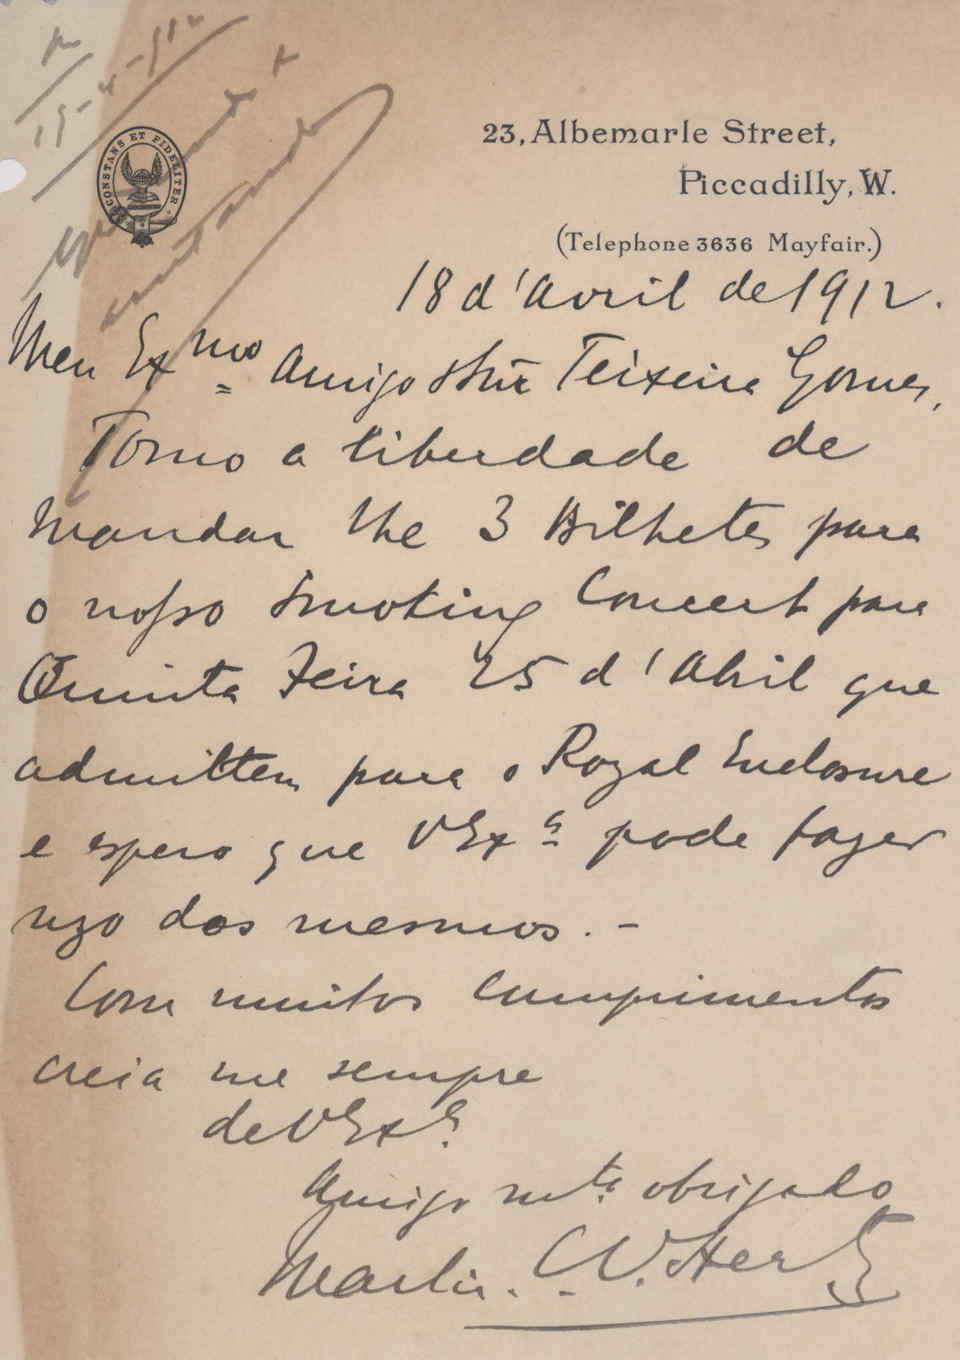 19-4-912
CONSTANS ET FIDELITER
23, Albemarle Street,
Piccadilly, W.
(Telephone 3636 Mayfair.)
18 d'Avril de 1912.
Meu Exmo Amigo Snr Teixeira Gomes,
Tomo a liberdade de
mandar lhe 3 Bilhetes para
o nosso Smoking Concert para
Quinta Feira 25 d'Abril que
admittem para o Royal Enclosure
e espero que VExa pode fazer
uzo dos mesmos. -
Com muitos cumprimentos
creia me sempre
de VExa
Amigo mto obrigado
Martin. C. W. Hertz